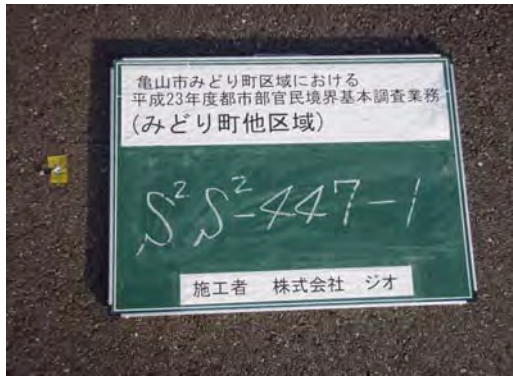 亀山市みどり町区域における
平成23年度都市部官民境界基本調査業務
(みどり町他区域)
S²S²-447-1
施工者 株式会社 ジオ